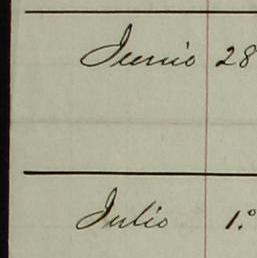 Junio 28
Julio 1.º